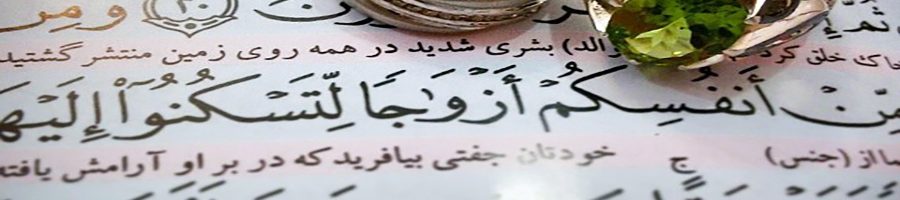 ثُمَّ ٢٠ وَمِنْ
خاک خلق کرد الد) بشری شدید در همه روی زمین منتشر گشتید
مِّنْ أَنفُسِكُمْ أَزْوَٰجًا لِّتَسْكُنُوٓا۟ إِلَيْهَا
از (جنس) خودتان جفتی بیافرید که در بر او آرامش یافته